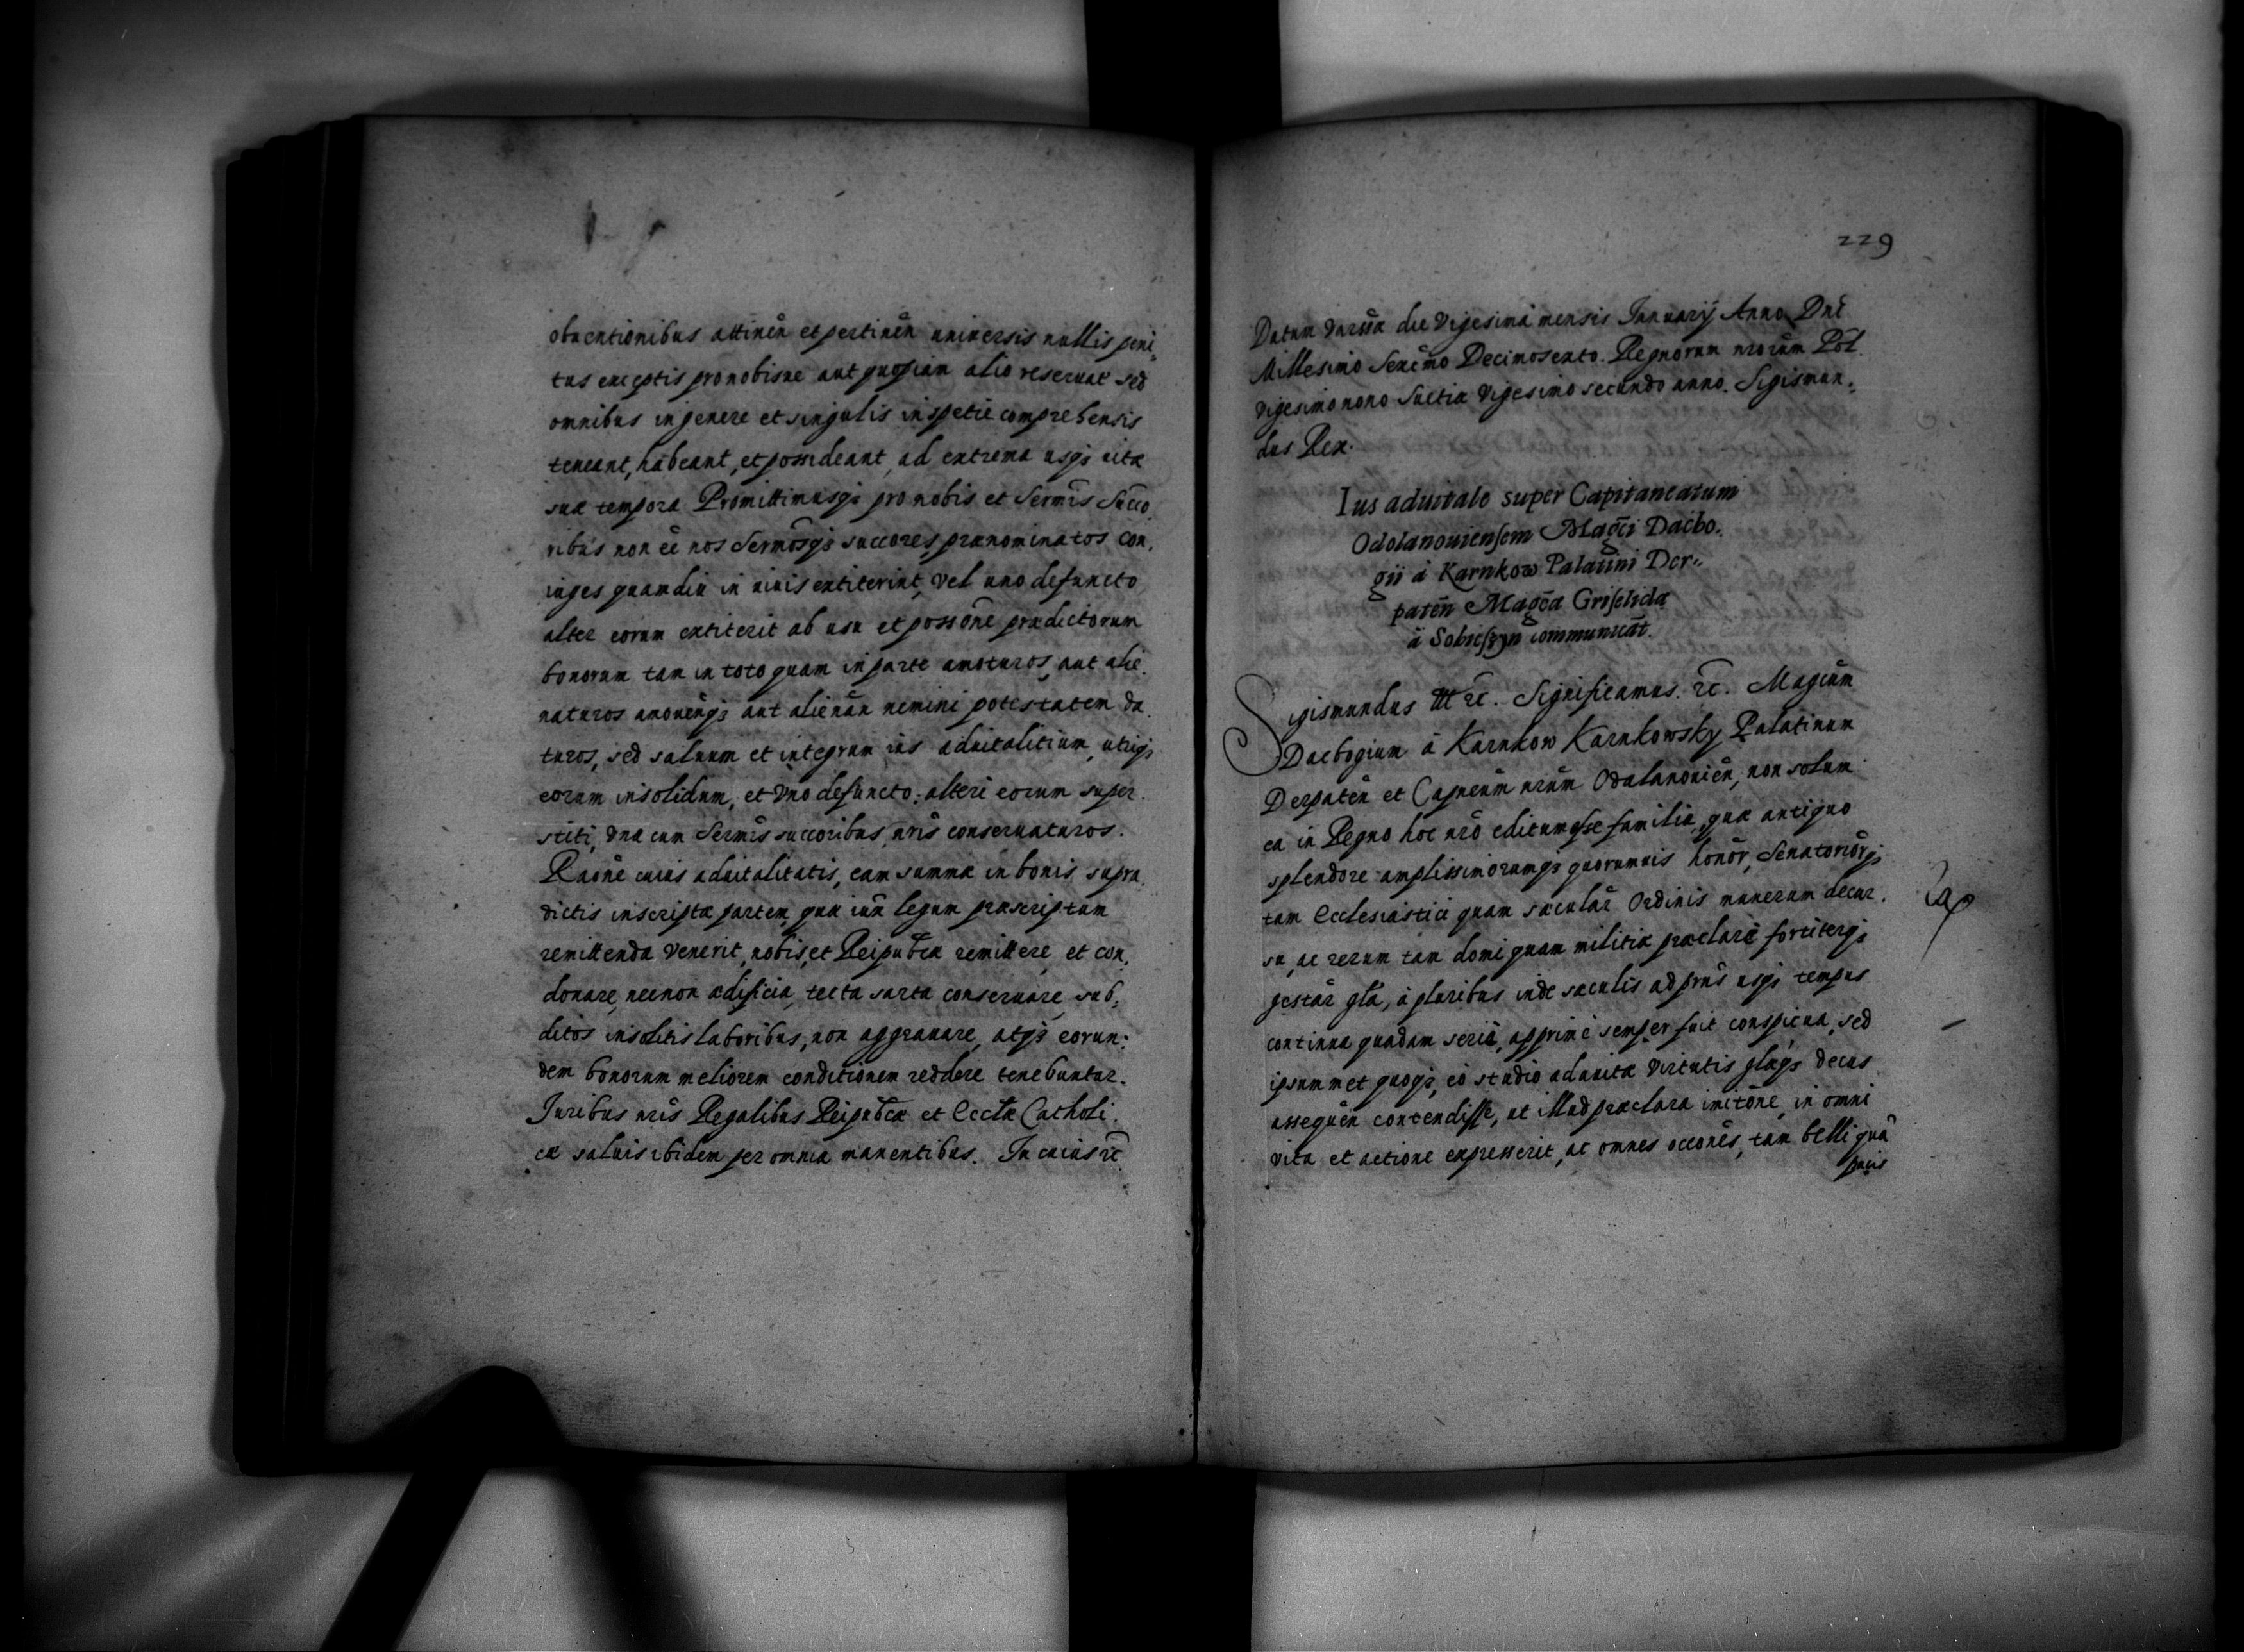 obuentionibus attinen̄ et pertinen̄ uniuersis nullis peni„
tus exceptis pro nobisue aut quopiam alio reseruat sed
omnibus in genere et singulis in spetie comprehensis
teneant, habeant, et possideant, ad extrema usq₃ uitæ
suæ tempora Promittimusq₃ pro nobis et Sermīs Succo
ribus non eē nos Sermōsq₃ succores, prænominatos Con,
iuges quamdiu in uiuis extiterint, Vel uno defuncto
alter eorum extiterit ab usu et possōne prædictorum
bonorum tam in toto quam in parte amoturos, aut alie.
naturos amouen̄q₃ aut alienān nemini potestatem da.
turos, sed saluum et integrum ius aduitalitium, utriq₃
eorum insolidum, et Vno defuncto, alteri eorum super.
stiti, Vna cum Sermīs succoribus nrīs conseruaturos.
Raōne cuius aduitalitatis, eam summæ in bonis supra.
dictis inscriptæ partem, quæ iux̄ legum præscriptum
remittenda Venerit, nobis, et Reipubcæ remittere, et con,
donare, necnon ædificia, tecta sarta conseruare, sub,
ditos insolitis laboribus, non aggrauare, atq₃ eorun:
dem bonorum meliorem conditionem reddere tenebuntur.
Iuribus nrīs Regalibus Reipubcæ et Eccłæ Catholi.
cæ saluis ibidem per omnia manentibus. In cuius rē.
229
Datum Varsīæ die Vigesima mensis Ianuarij Anno Dnī
Millesimo Sexcm̄o Decimosexto. Regnorum nrorum Pol.
Vigesimonono Suetiæ Vigesimo secundo anno. Sigismun„
dus Rex.
Ius aduitale super Capitaneatum
Odolanouiensem Magc̄i Dacbo„
gii à Karnkow Palatini Der„
paten̄ Magc̄a Griselida
à Sobieszyn communicat̄.
Sigismundus III rc̄. Significamus. rc̄. Magcūm
Dacbogium à Karnkow Karnkowsky Palatinum
Derpatēn et Capneūm nrūm Odalanouiēn, non solum
ea in Regno hoc nrō editum esse familia, quæ antiquo
splendore amplissimorumq₃ quorumuis honōr, Senatoriōrq₃
tam Ecclesiastici quam sæculār Ordinis munerum decur.
su, ac rerum tam domi quam militiæ præclarè fortiterq₃
gestār glā, à pluribus inde sæculis ad prns̄ usq₃ tempus
continua quadam serie, apprimè semper fuit conspicua, sed
ipsummet quoq₃, eò studio aduitæ Virtutis glæq₃ decus
assequēn contendisse, ut illud præclara imitōne, in omni
Vita et actione expresserit, ac omnes occōnes, tam belli quā
pacis